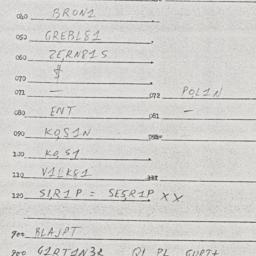 040 BRON1
050 GREBL81
060 ZERN81S
070 $
071 — 072 PQL1N
080 ENT 081 —
090 KQS1N
100 KQS1
110 V1LK81
120 S1R1P = SESR1P XX
900 BLAJPT